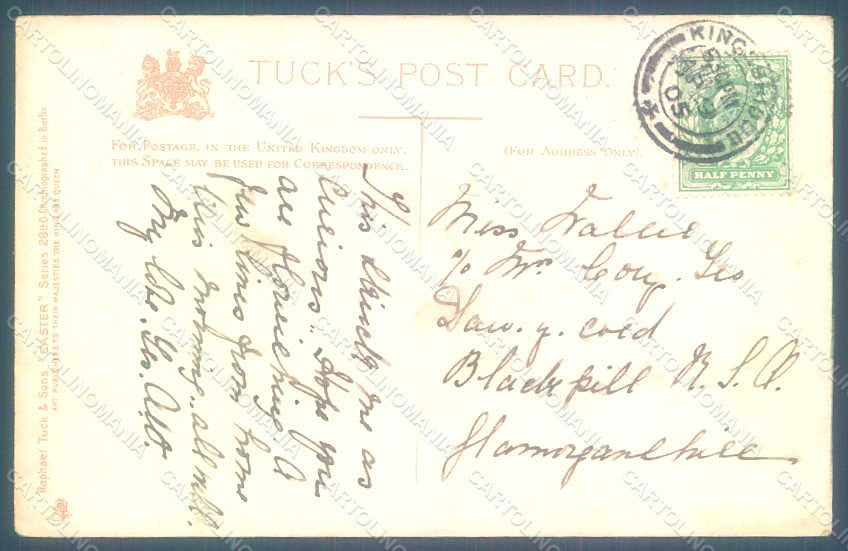 TUCK'S POST CARD.
FOR POSTAGE, IN THE UNITED KINGDOM ONLY,
THIS SPACE MAY BE USED FOR CORRESPONDENCE.
(FOR ADDRESS ONLY).
HALF PENNY
05
This strikes me as
Curious. Hope you
are flourishing. A
few lines from home
this morning. all well.
Miss
c/o Mr. Geo
Daw. y. coed
Blackpill R.S.O.
Glamorganshire
Raphael Tuck & Sons "EASTER" Series 2840 Chromographed in Berlin
ART PUBLISHERS TO THEIR MAJESTIES THE KING AND QUEEN
CARTOLINOMANIA